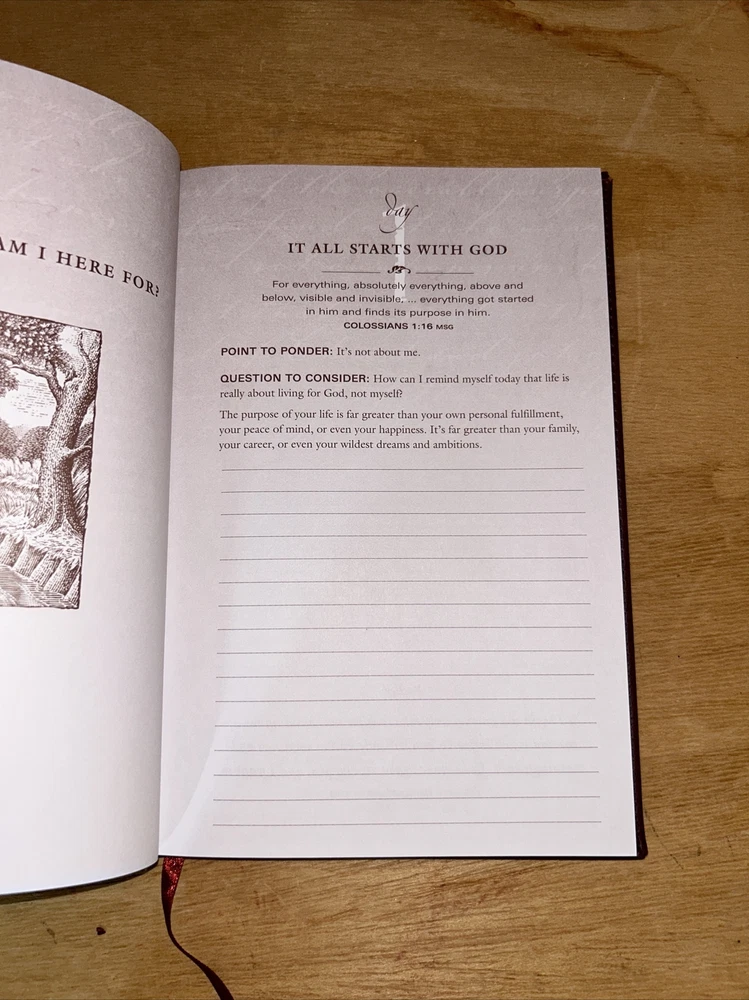 AM I HERE FOR?
day
1
IT ALL STARTS WITH GOD
For everything, absolutely everything, above and
below, visible and invisible, ... everything got started
in him and finds its purpose in him.
COLOSSIANS 1:16 MSG
POINT TO PONDER: It's not about me.
QUESTION TO CONSIDER: How can I remind myself today that life is
really about living for God, not myself?
The purpose of your life is far greater than your own personal fulfillment,
your peace of mind, or even your happiness. It's far greater than your family,
your career, or even your wildest dreams and ambitions.